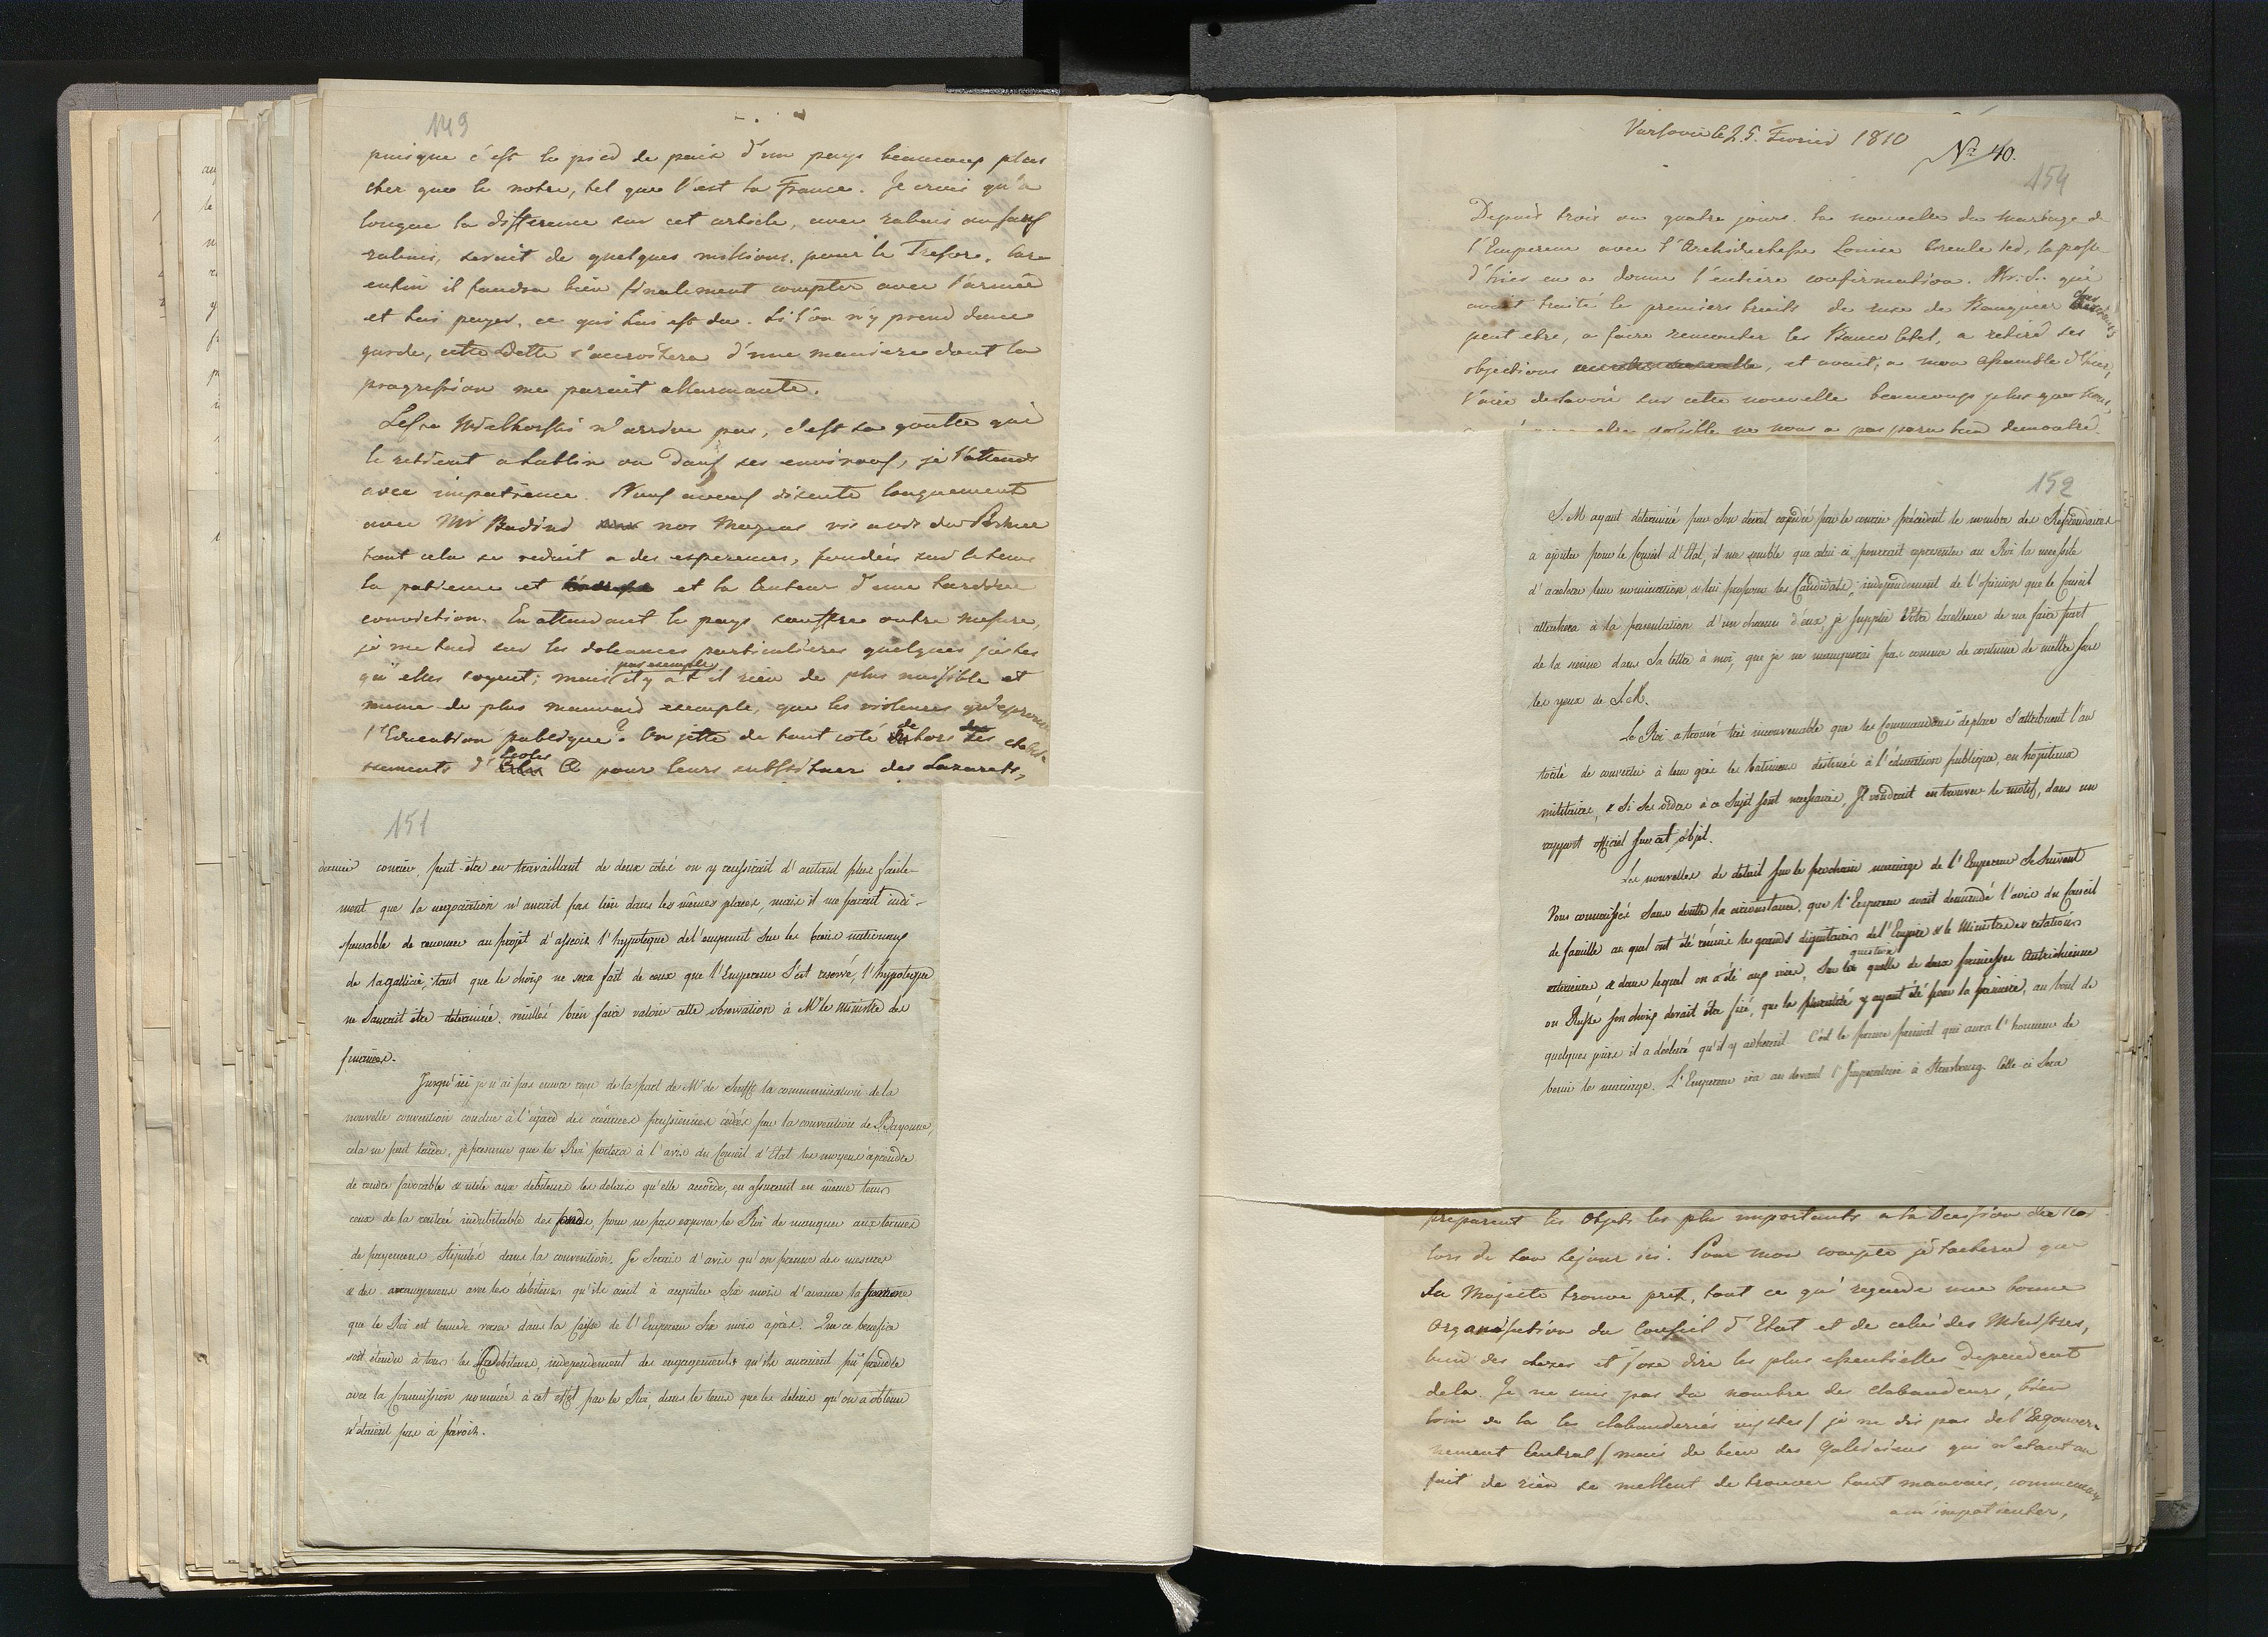 149
puisque c'est le pied de paix d'un pays beaucoup plus
cher que le notre, tel que l'est la France. Je crois qu'a
longue la difference sur cet article, avec rabais ou sauf
rabais, seroit de quelques millions pour le Tresor. Car
enfin il faudra bien finalement compter avec l'armée
et lui payer, ce qui lui est du. Si l'on n'y prend donc
garde, cette Dette s'accroitera d'une maniere dont la
progression me paroit allarmante.
Wielhorski n'arrive pas, c'est sa goutte qui
le retient a Lublin ou dans ses environs, je l'attends
avec impatience. Nous avons discuté longuement
avec Mr Badeni nos
tout cela se reduit a des esperances, fondées sur le tems
la patience et et la lenteur d'une tardive
conviction. En attendant le pays souffre outre mesure,
je me tais sur les doleances particulières quelques justes
par exemple
qu'elles soyent; mais il y a t il rien de plus nuisible et
même de plus mauvais exemple, que les violences qu'eprouve
l'Education publique? On jette de tout coté de hors des etablis-
Ecoles
sements d' pour leurs substituer des Lazarets,
151
dernier courier, peut-être en travaillant de deux cotés on y reussiroit d'autant plus facile-
ment que la negociation n'auroit pas lieu dans les mêmes places, mais il me paroit indi-
spensable de renoncer au projet d'asseoir l'hypoteque de l'emprunt sur les biens nationaux
de la gallicie, tant que le choix ne sera fait de ceux que l'Empereur s'est reservé, l'hypoteque
ne sauroit être determinée. veuillés bien faire valoir cette observation à Mr le Ministre des
finances.
Jusqu'ici je n'ai pas encore reçu de la part de Mr de Senfft la communication de la
nouvelle convention conclue à l'égard des créances prussiennes cédées par la convention de Bayonne,
cela ne peut tarder, je presume que le Roi portera à l'avis du Conseil d'Etat les moyens à prendre
de rendre favorable & utile aux debiteurs les delais qu'elle accorde, en assurant en même tems
ceux de la rentrée indubitable des fonds, pour ne pas exposer le Roi de manquer aux termes
de payemens stipulés dans la convention. Je serais d'avis qu'on prenne des mesures
& des arrangemens avec les débiteurs qu'ils aient à acquiter six mois d'avance la somme
que le Roi est tenu de verser dans la Caisse de l'Empereur six mois après. Que ce benefice
soit étendu à tous les debiteurs, independemment des engagements qu'ils auroient pû prendre
avec la Commission nommée à cet effet par le Roi, dans le tems que les delais qu'on a obtenu
n'étoient pas à prévoir.
Varsovie le 25. Fevrier 1810
No 40.
154
Depuis trois ou quatre jours la nouvelle du mariage de
l'Empereur avec l'Archiduchesse Louise circule ici, la poste
d'hier en a donné l'entiere confirmation. qui
avoit traité les premiers bruits de ruse de Banquier
peut etre, a faire remonter les Banco Cetel, a retiré ses
objections , et avoit, a mon assemblée d'hier,
l'air de savoir sur cette nouvelle beaucoup plus que nous,
ne nous a pas paru bien demontré.
152
S. M. ayant determiné par son decret expedié par le courier précédent le nombre des Referendaires
à ajouter pour le Conseil d'Etat, il me semble que celui ci pourroit representer au Roi la necessité
d'accelerer leur nomination, & lui proposer les Candidats; independemment de l'opinion que le Conseil
attachera à la presentation d'un chacun d'eux, je supplie Votre Excellence de me faire part
de la sienne dans sa lettre à moi, que je ne manquerai pas comme de coutume de mettre sous
les yeux de S. M.
Le Roi a trouvé très inconvenable que les Commandans de place s'attribuent l'au
torité de convertir à leur gré les batimens destinés à l'éducation publique, en hopitaux
militaires, & si ses ordres à ce sujet sont necessaires, Il voudrait en trouver le motif, dans un
rapport officiel sur cet objet.
Les nouvelles de detail sur le prochain mariage de l'Empereur se suivent
Vous connaissés sans doute la circonstance, que l'Empereur avait demandé l'avis du Conseil
de famille au quel ont été réunis les grands dignitaires de l'Empire & le Ministre des relations
exterieures, & dans lequel on a été aux voix, sur la question quelle de deux princesses Autrichienne
ou Russe son choix devait être fixé, que la pluralité y ayant été pour la premiere, au bout de
quelques jours il a déclaré qu'il y adheroit. C'est le prince primat qui aura l'honneur de
benir le mariage. L'Empereur ira au devant l'Imperatrice à Strasbourg. Celle-ci sera
preparent les objets les plus importants a la Decision du Roi
lors de son sejour ici. Pour mon compte je tacherai que
Sa Majesté trouve pret, tout ce qui regarde une bonne
organisation du Conseil d'Etat et de celui des Ministres,
bien des choses et j'ose dire les plus essentielles dependent
dela. Je ne suis pas du nombre des clabaudeurs, bien
loin de la les clabauderies injustes / je ne dis pas de l'Exgouver-
nement Central / mais de bien des Galiciens qui n'etant au
fait de rien se mettent de trouver tout mauvais, commencent
a m'impatienter,